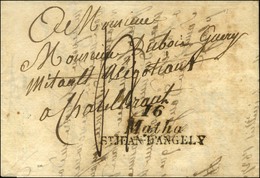 A Monsieur
Monsieur Dubois Guery
Mitault Négotiant
a Chatellraut
16
Matha
ST JEAN D'ANGELY